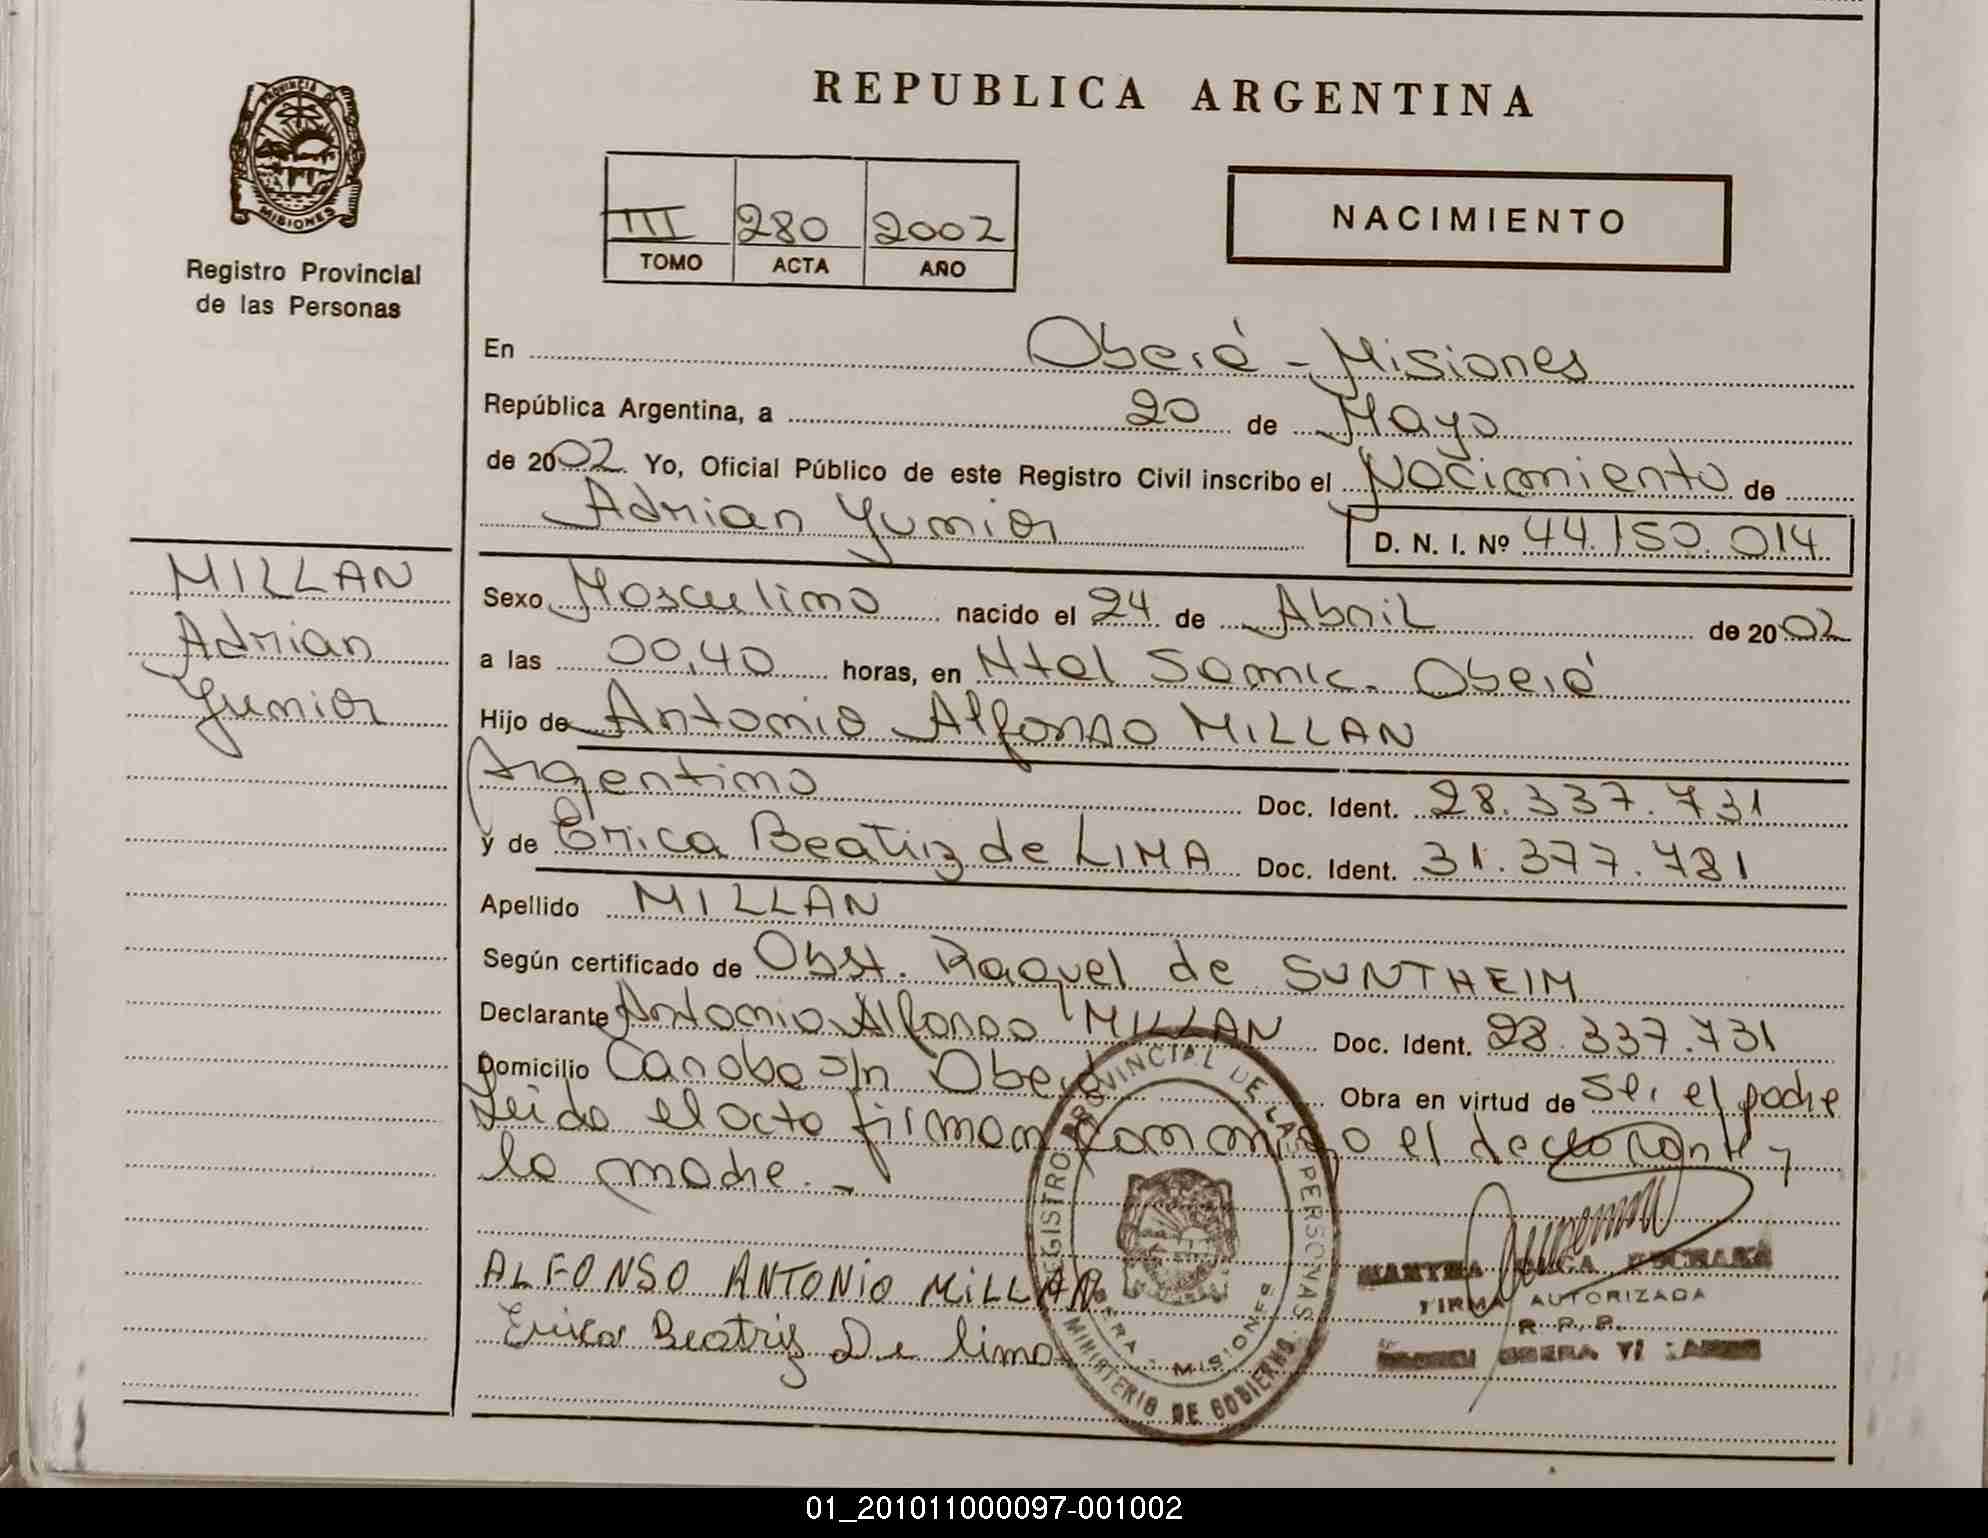 REPUBLICA ARGENTINA
PROVINCIA DE
MISIONES
Registro Provincial
de las Personas
III 280 2002
TOMO ACTA AÑO
NACIMIENTO
En Oberá - Misiones
República Argentina, a 20 de Mayo
de 2002 Yo, Oficial Público de este Registro Civil inscribo el Nacimiento de
Adrian Yunior D. N. I. Nº 44.150.014
MILLAN
Adrian
Yunior
Sexo Masculino nacido el 24 de Abril de 2002
a las 00,40 horas, en Htal Samic. Oberá
Hijo de Antonio Alfonso MILLAN
Argentino Doc. Ident. 28.337.731
y de Erica Beatriz de LIMA Doc. Ident. 31.377.781
Apellido MILLAN
Según certificado de Obst. Raquel de SUNTHEIM
Declarante Antonio Alfonso MILLAN Doc. Ident. 28.337.731
Domicilio Caraba s/n Oberá Obra en virtud de ser el padre
Leida el acta firman conmigo el declarante y
la madre. -
ALFONSO ANTONIO MILLAN
Erica Beatriz De lima
REGISTRO PROVINCIAL DE LAS PERSONAS
OBERA - MISIONES
MINISTERIO DE GOBIERNO
MARTHA OLGA
FIRMA AUTORIZADA
R. P. P.
OBERA
01_201011000097-001002